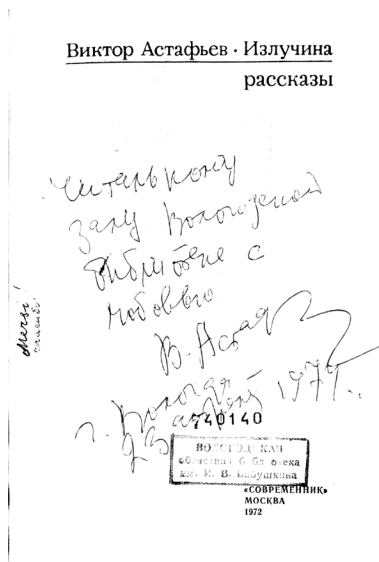 Виктор Астафьев · Излучина
рассказы
Читальному
залу Вологодской
библиотеке с
любовью
В. Астаф
г. Вологда
23 1979 г.
740140
ВОЛОГОДСКАЯ
областная библиотека
им. И. В. Бабушкина
«СОВРЕМЕННИК»
МОСКВА
1972
Merci!
спасибо!